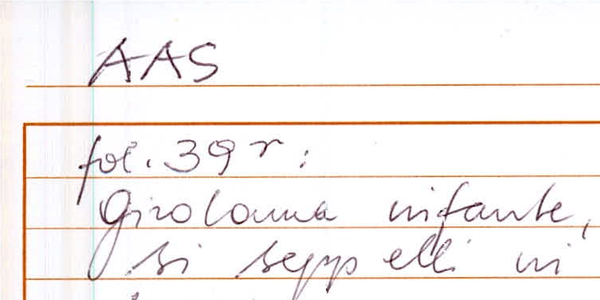 AAS
fol. 39 r :
Girolama infante,
si seppellì in